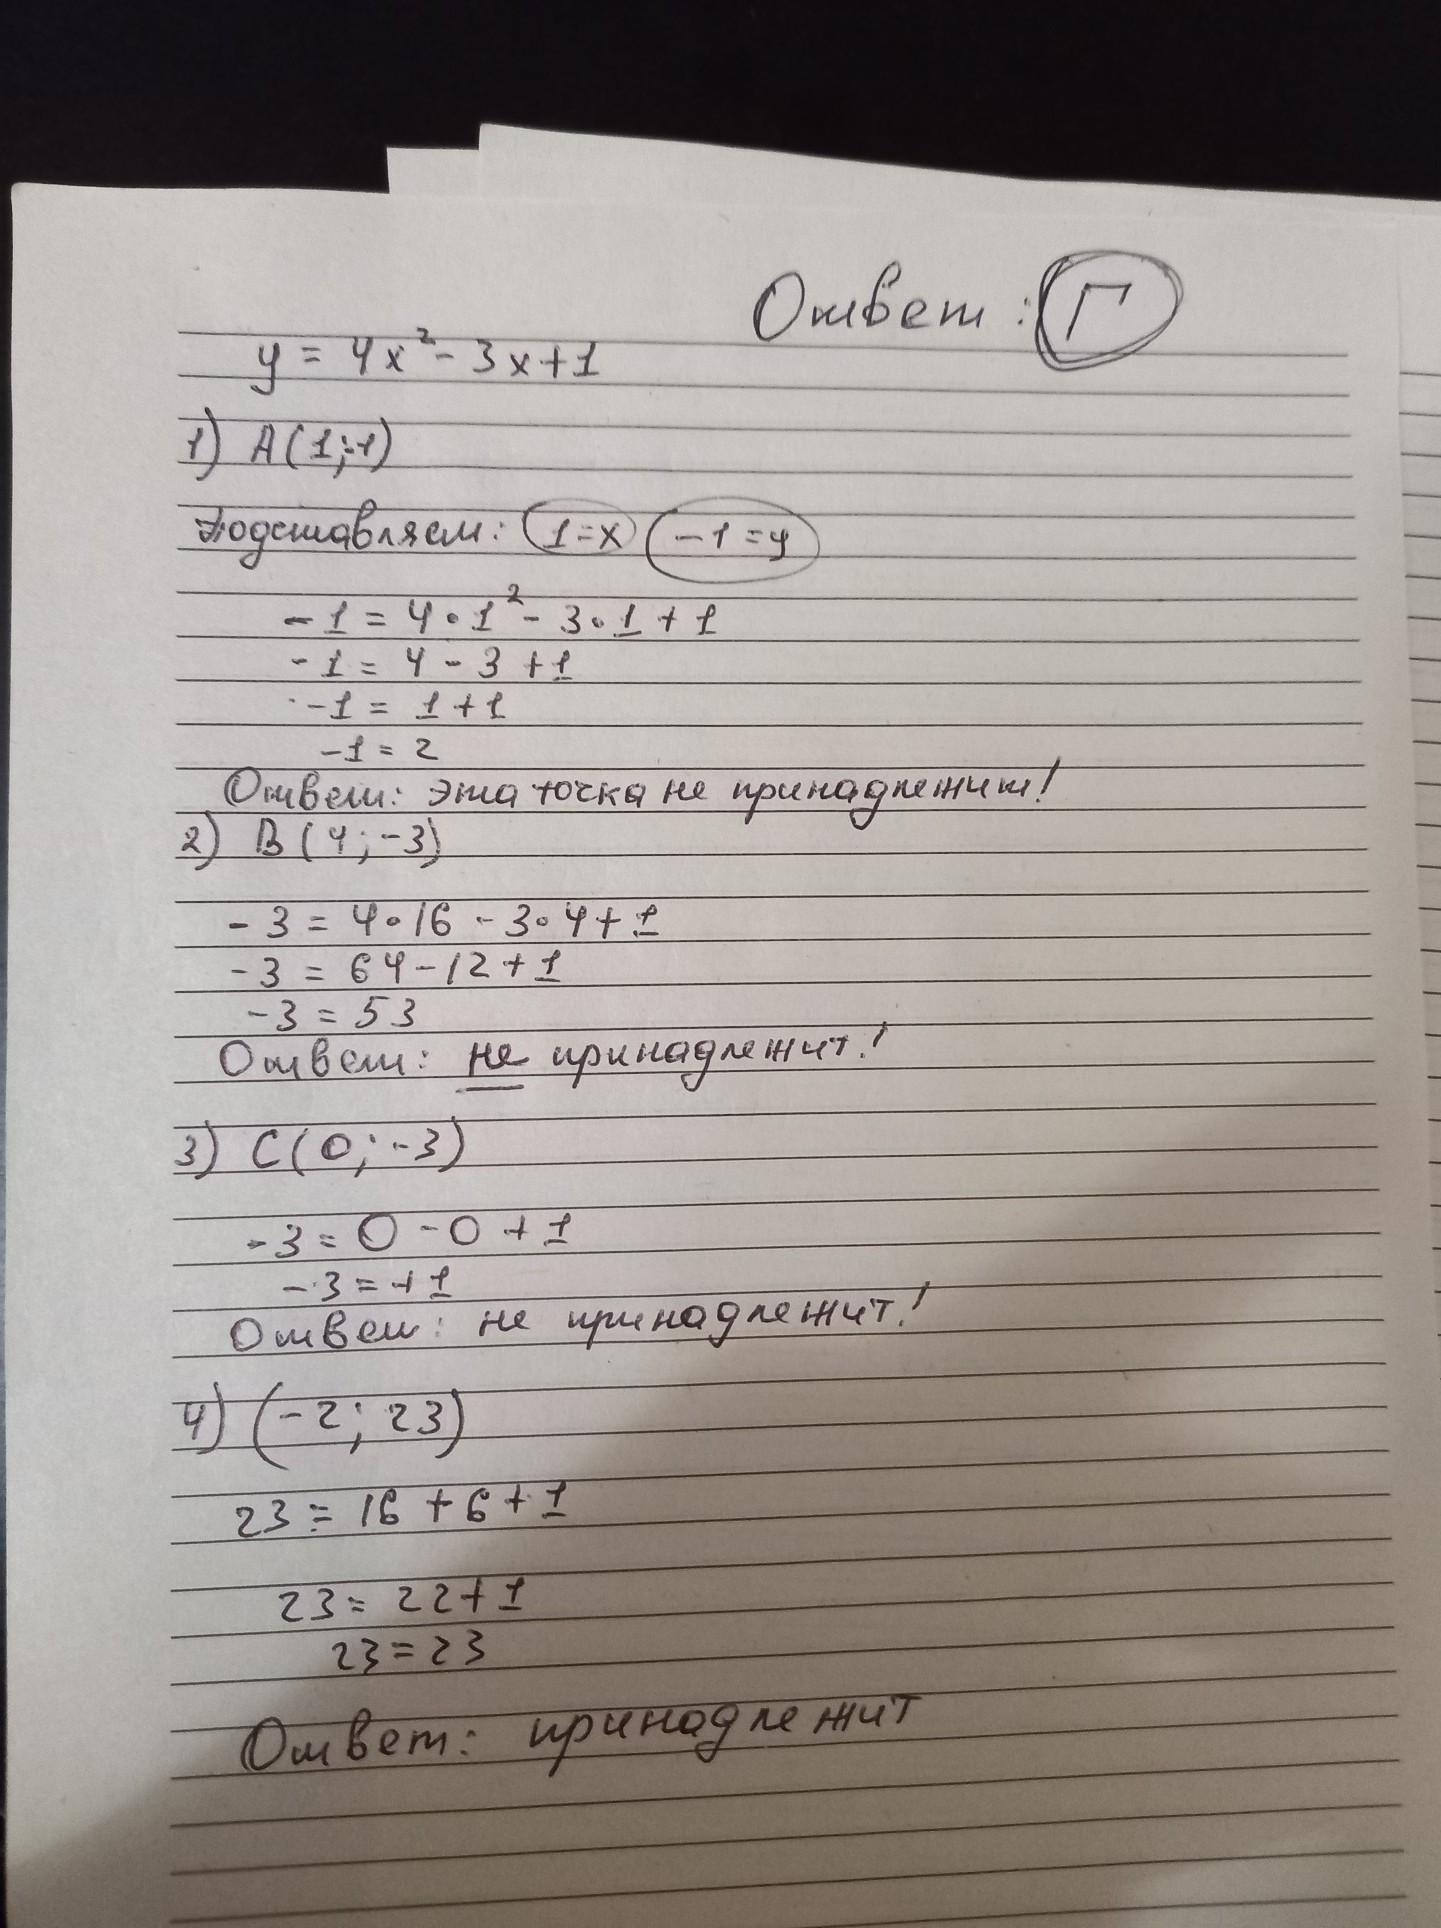 Ответ: Г
y = 4x² - 3x + 1
1) A(1;-1)
Подставляем: 1=x -1=y
-1 = 4·1² - 3·1 + 1
-1 = 4 - 3 + 1
-1 = 1 + 1
-1 = 2
Ответ: эта точка не принадлежит!
2) B(4; -3)
-3 = 4·16 - 3·4 + 1
-3 = 64 - 12 + 1
-3 = 53
Ответ: не принадлежит!
3) C(0; -3)
-3 = 0 - 0 + 1
-3 = +1
Ответ: не принадлежит!
4) (-2; 23)
23 = 16 + 6 + 1
23 = 22 + 1
23 = 23
Ответ: принадлежит